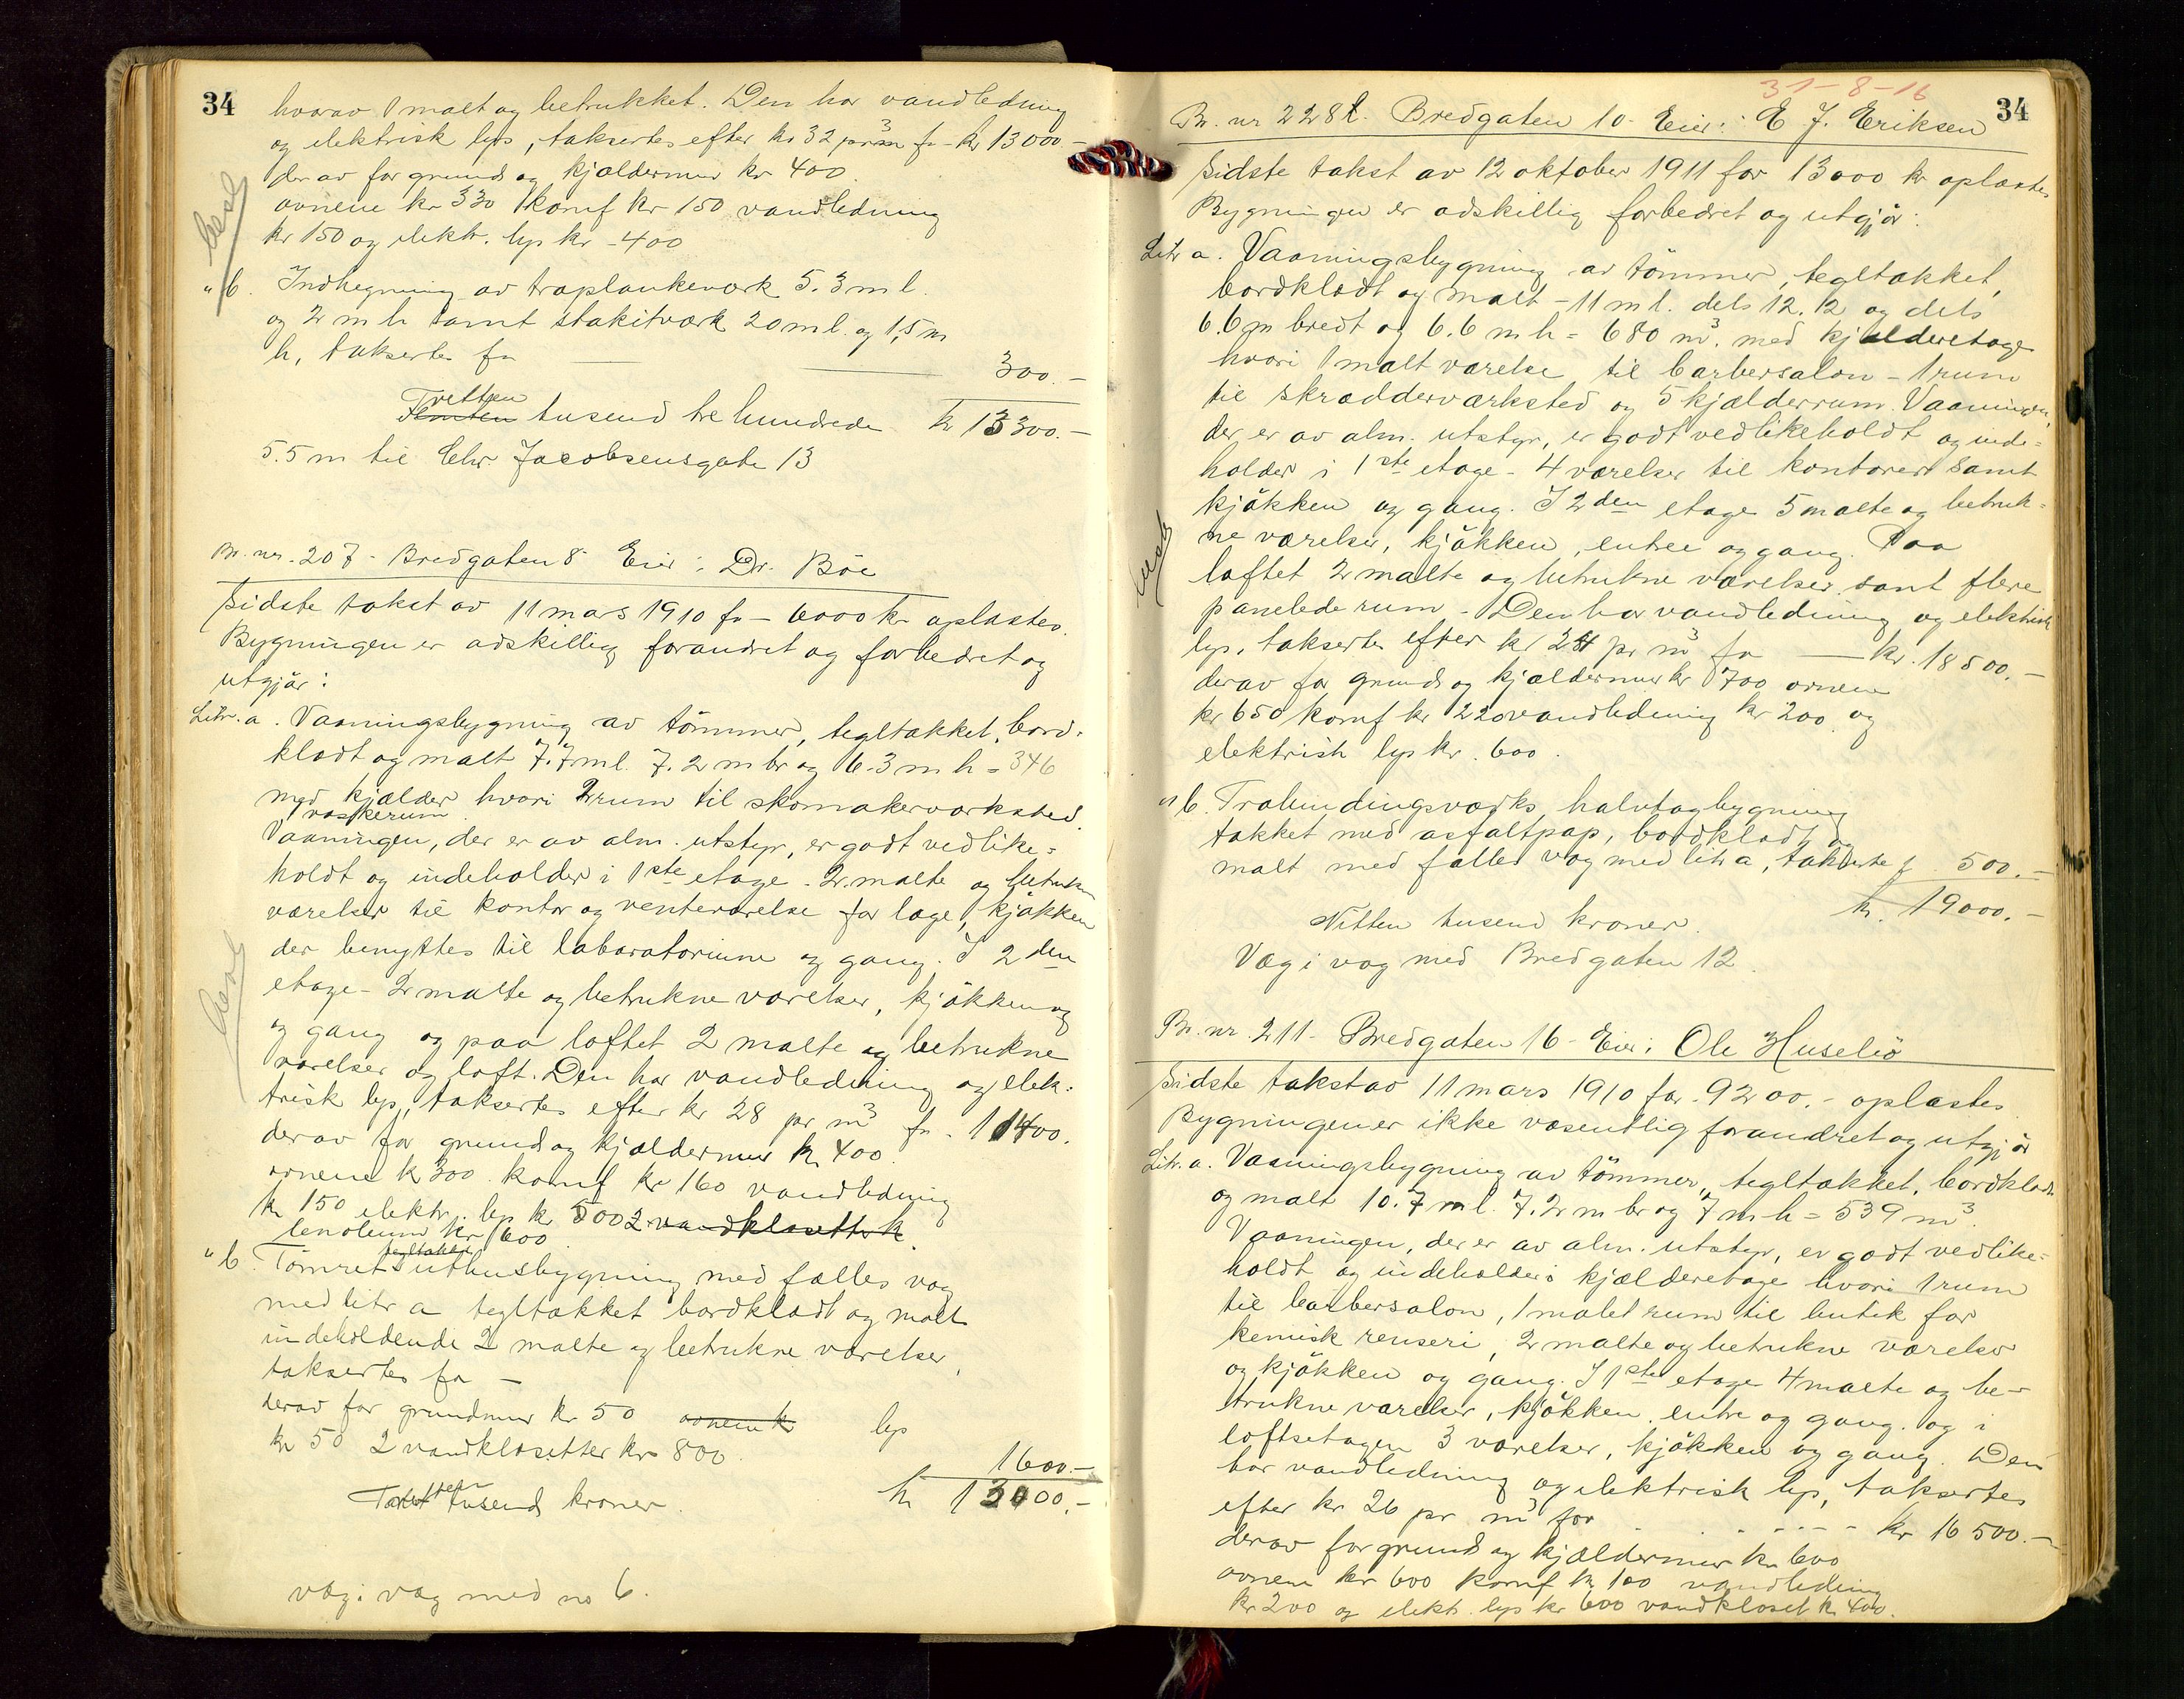 34
hvorav 1 malt og betrukket. Den har vandledning
og elektrisk lys, taksertes efter kr 32 pr m³ fr - kr 13000.-
derav for grund og kjældermur kr 400
ovnene kr 330 1 komf kr 150 vandledning
kr 150 og elektr. lys kr - 400
" b. Indhegning av træplankeværk 5.3 m l.
og 2 m h samt stakitværk 20 m l. og 1,5 m
h, taksertes fr 300.-
Tretten
Femten tusend tre hundrede kr 13300.-
5.5 m til Chr. Jacobsensgate 13
Br. nr. 207 - Bredgaten 8 Eier: Dr. Böe
Sidste takst av 11 mars 1910 fr - 6000 kr oplæstes.
Bygningen er adskillig forandret og forbedret og
utgjör:
Litr. a. Vaaningsbygning av tömmer, tegltækket, bord-
klædt og malt 7.7 m l. 7.2 m br og 6.3 m h = 346
med kjælder hvori 2 rum til skomakerværksted.
1 vaskerum
Vaaningen, der er av alm. utstyr, er godt vedlike=
holdt og indeholder i 1ste etage - 2 malte og betrukne
værelser til kontor og venteværelse for læge, kjökken
der benyttes til laboratorium og gang. I 2den
etage - 2 malte og betrukne værelser, kjökken og
og gang og paa loftet 2 malte og betrukne
værelser og loft. Den har vandledning og elek-
trisk lys, taksertes efter kr 28 pr m³ fr. 11400.
derav for grund og kjældermur kr 400.
ovnene kr 300. komf kr 160 vandledning
kr 150 elektr. lys kr 500 2 vandklosetter kr
lenoleum kr 600
" b. Tömret tegltækket uthusbygning med fælles væg
med litr a tegltækket bordklædt og malt
indeholdende 2 malte og betrukne værelser,
taksertes fr -
derav for grundmur kr 50 ovnene kr lys
kr 50 2 vandklosetter kr 800. 1600.-
Tretten tusend kroner. kr 13000.-
væg i væg med no 6.
31-8-16
34
Br. nr 228 l. Bredgaten 10 - Eier: E J. Eriksen
Sidste takst av 12 oktober 1911 for 13000 kr oplæstes
Bygningen er adskillig forbedret og utgjör:
Litr a. Vaaningsbygning av tömmer, tegltækket,
bordklædt og malt - 11 m l. dels 12.12 og dels
6.6 m bredt og 6.6 m h = 680 m³. med kjælderetage
hvori 1 malt værelse til barbersalon - 1 rum
til skrædderværksted og 5 kjælderrum. Vaaningen,
der er av alm. utstyr, er godt vedlikeholdt og inde-
holder i 1ste etage - 4 værelser til kontorer samt
kjökken og gang. I 2den etage 5 malte og betruk-
ne værelser, kjökken, entree og gang. Paa
loftet 2 malte og betrukne værelser samt flere
panelede rum - Den har vandledning og elektrisk
lys, taksertes efter kr 28 pr m³ fr kr. 18500.-
derav for grund og kjældermur kr 700 ovnene
kr 650 komf kr 220 vandledning kr 200 og
elektrisk lys kr. 600.
" b. Træbindingsværks halvtagbygning
tækket med asfaltpap, bordklædt og
malt med fælles væg med litr a, taksertes f 500.-
Nitten tusend kroner. kr. 19000.-
Væg i væg med Bredgaten 12.
Br. nr. 211 - Bredgaten 16 - Eier: Ole Huseliö
Sidste takst av 11 mars 1910 for 9200.- oplæstes
Bygningen er ikke væsentlig forandret og utgjör
Litr. a. Vaaningsbygning av tömmer, tegltækket, bordklædt
og malt 10.7 m l. 7.2 m br og 7 m h = 539 m³.
Vaaningen, der er av alm. utstyr, er godt vedlike-
holdt og indeholder i kjælderetage hvori 1 rum
til barbersalon, 1 malet rum til butik for
kemisk renseri, 2 malte og betrukne værelser
og kjökken og gang. I 1ste etage 4 malte og be-
trukne værelser, kjökken, entre og gang. og i
loftsetagen 3 værelser, kjökken og gang. Den
har vandledning og elektrisk lys, taksertes
efter kr 26 pr m³ for - - - - kr 16500.-
derav for grund og kjældermur kr 600
ovnene kr 600 komf kr 100 vandledning
kr 200 og elekt. lys kr 600 vandkloset kr 400.